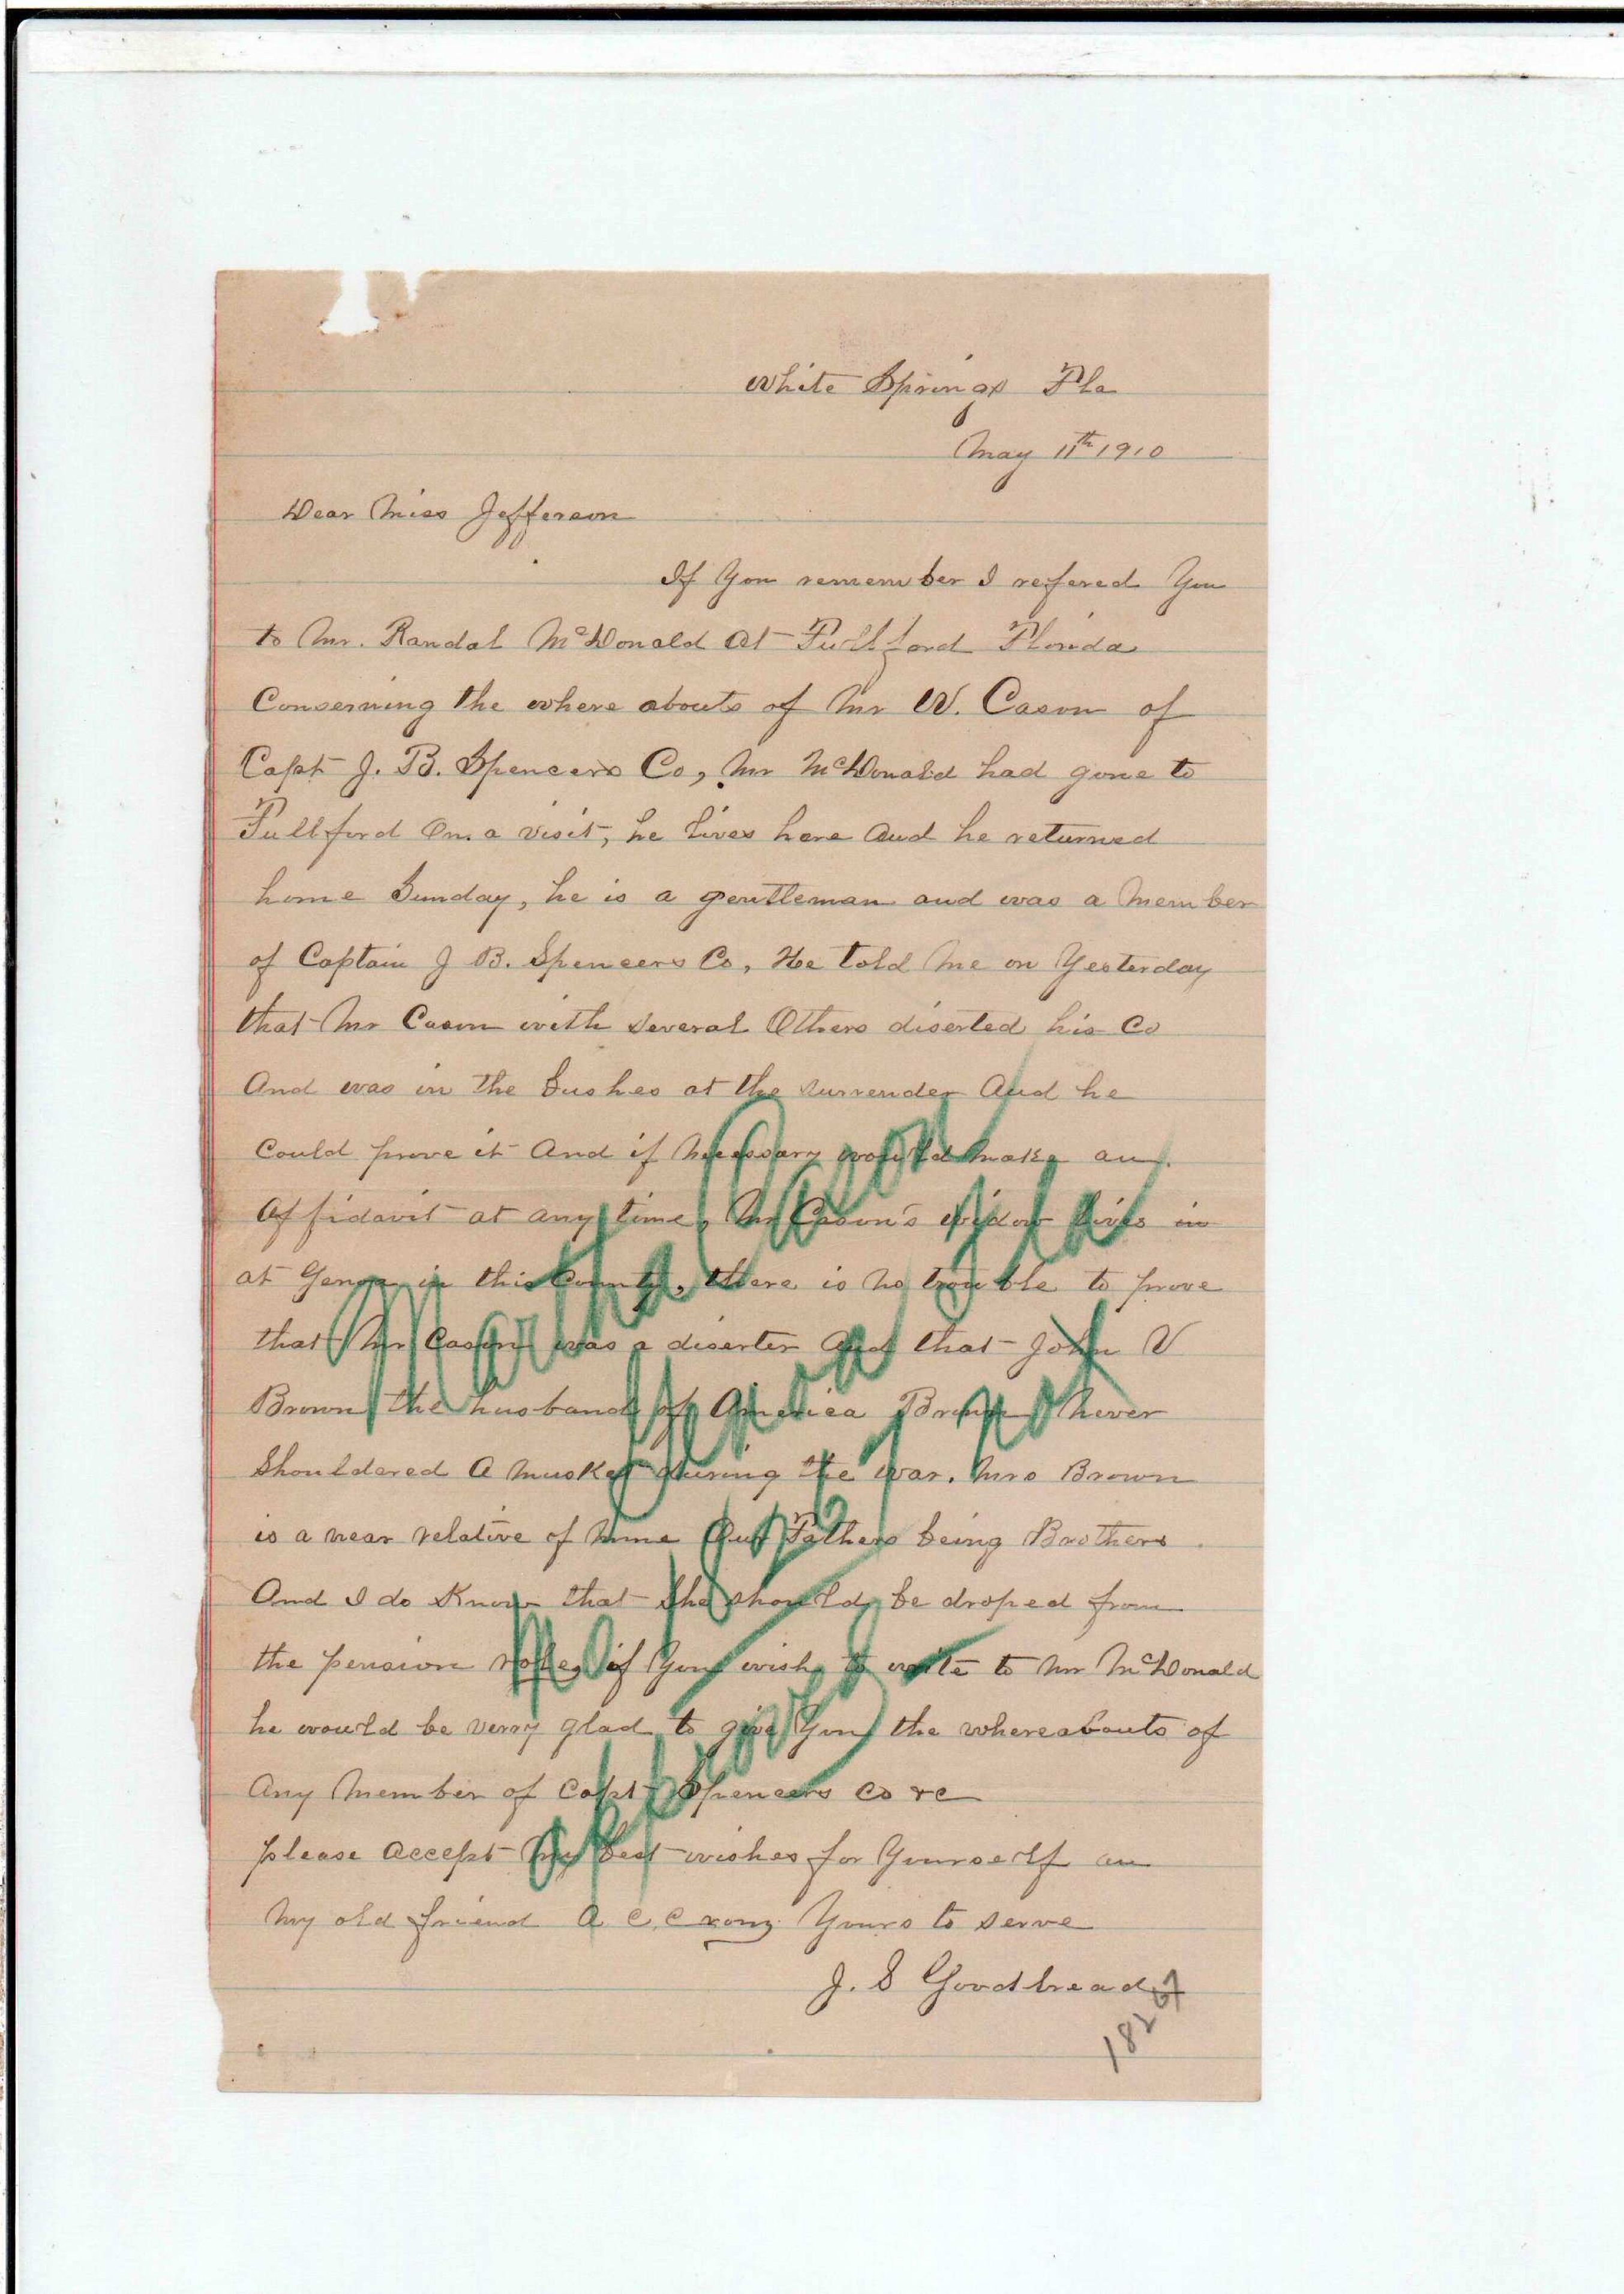 White Springs Fla
May 11th 1910
Dear Miss Jefferson
If You remember I refered You
to Mr. Randal McDonald At Fullford Florida
Conserning the where abouts of Mr W. Cason of
Capt J. B. Spencers Co, Mr McDonald had gone to
Fullford On a visit, he lives here And he returned
home Sunday, he is a gentleman and was a Member
of Captain J B. Spencers Co, He told Me on Yesterday
that Mr Cason with several Others diserted his Co
And was in the bushes at the surrender And he
Could prove it And if Necessary would Make an
Affidavit at any time, Mr Cason's widow lives in
at Genoa in this County, there is No trouble to prove
that Mr Cason was a diserter And that John V
Brown the husband of America Brown Never
Shouldered A Musket during the war. Mrs Brown
is a near relative of Mine Our Fathers being Brothers
And I do Know that She should be droped from
the pension if You wish to write to Mr McDonald
he would be verry glad to give You the whereabouts of
Any Member of Capt Spencers Co &c
please Accept My best wishes for Yourself an
My old friend A C Yours to serve
J. S Goodbread
Martha Cason
182